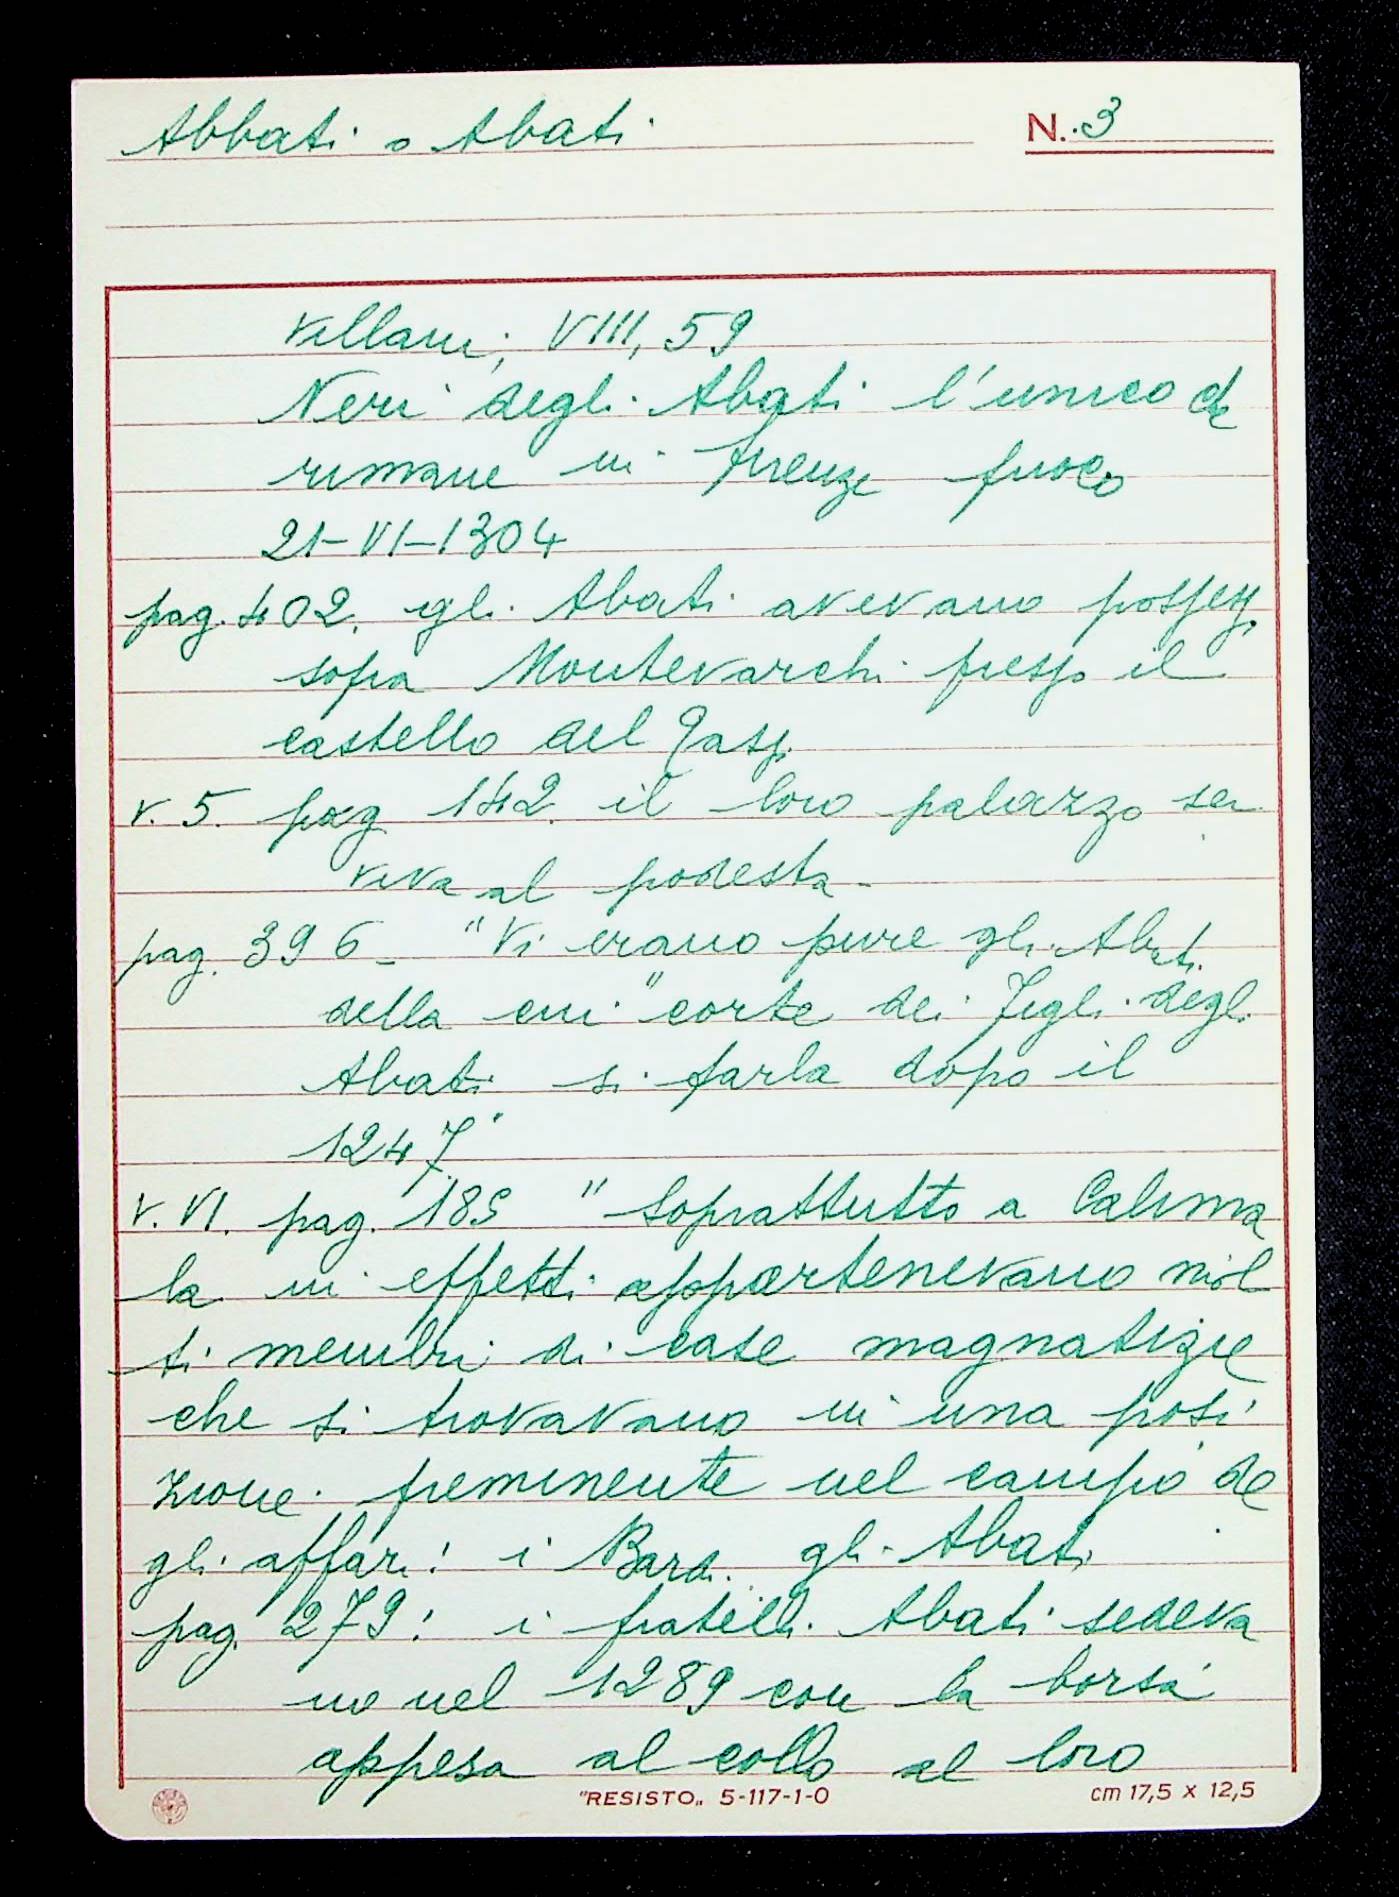 Abbati o Abati N. 3
Villani, VIII, 59
Neri degli Abati l'unico che
rimane in Firenze fuoco
21-VI-1304
pag. 402. gli Abati avevano possess.
sopra Montevarchi presso il
castello del
v. 5. pag 142 il loro palazzo ser
viva al podestà
pag. 396 - "Vi erano pure gli Abati
della cui "corte dei Figli degli
Abati si parla dopo il
1247"
v. VI. pag. 185 "Soprattutto a Calima
la in effetti appartenevano mol
ti membri di case magnatizie
che si trovavano in una posi
zione preminente nel campo de
gli affari: i Bardi gli Abati
pag. 279: i fratelli Abati sedeva
no nel 1289 con la borsa
appesa al collo al loro
"RESISTO„ 5-117-1-0 cm 17,5 x 12,5